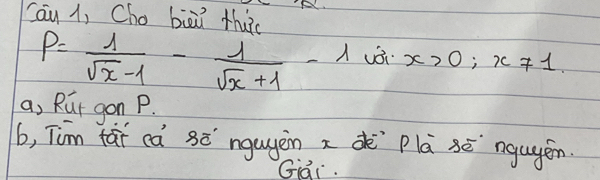 Câu 1, Cho biểu thức
P = \frac{1}{\sqrt{x}-1} - \frac{1}{\sqrt{x}+1} - 1 với x > 0 ; x ≠ 1.
a, Rút gọn P.
b, Tìm tất cả số nguyên x để P là số nguyên.
Giải.